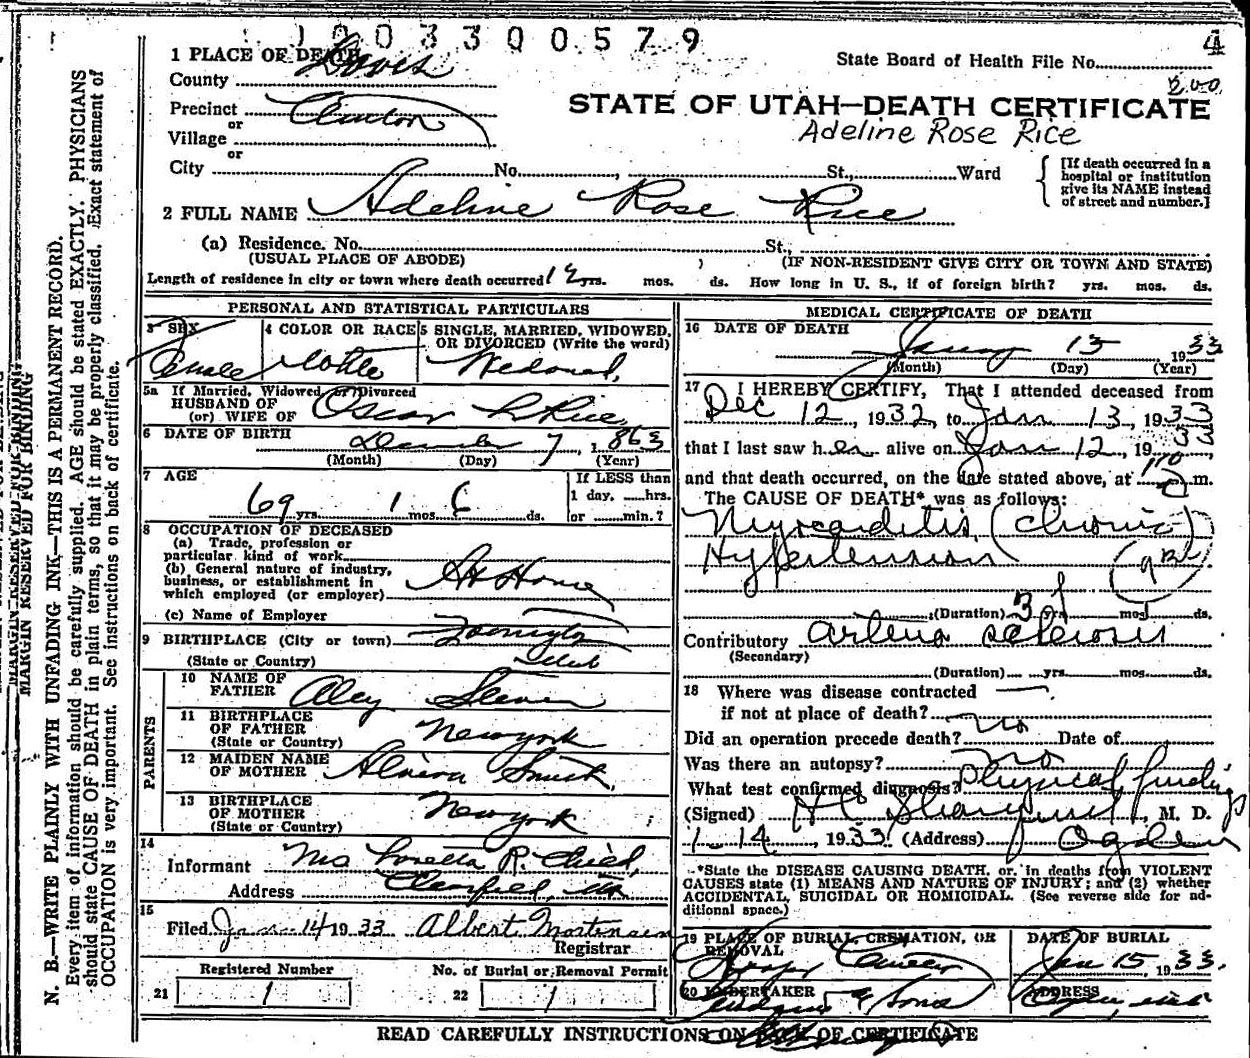 1003300579
4
1 PLACE OF DEATH
State Board of Health File No.
County Davis
200
Precinct Clinton
STATE OF UTAH—DEATH CERTIFICATE
or
Adeline Rose Rice
Village
or
City No. St., Ward
[If death occurred in a hospital or institution give its NAME instead of street and number.]
2 FULL NAME Adeline Rose Rice
(a) Residence. No. St.,
(USUAL PLACE OF ABODE) (IF NON-RESIDENT GIVE CITY OR TOWN AND STATE)
Length of residence in city or town where death occurred 12 yrs. mos. ds. How long in U. S., if of foreign birth? yrs. mos. ds.
PERSONAL AND STATISTICAL PARTICULARS
3 SEX Female
4 COLOR OR RACE White
5 SINGLE, MARRIED, WIDOWED, OR DIVORCED (Write the word)
Widowed
5a If Married, Widowed or Divorced
HUSBAND OF
(or) WIFE OF Oscar L Rice
6 DATE OF BIRTH December 7, 1863
(Month) (Day) (Year)
7 AGE
69 yrs. 1 mos. 6 ds.
If LESS than
1 day, hrs.
or min.?
8 OCCUPATION OF DECEASED
(a) Trade, profession or
particular kind of work
(b) General nature of industry,
business, or establishment in
which employed (or employer) At Home
(c) Name of Employer
9 BIRTHPLACE (City or town)
(State or Country) Utah
PARENTS
10 NAME OF
FATHER
11 BIRTHPLACE
OF FATHER New york
(State or Country)
12 MAIDEN NAME
OF MOTHER Smith
13 BIRTHPLACE
OF MOTHER New york
(State or Country)
14
Informant Mrs Loretta R. Child
Address Clearfield, Utah
15
Filed Jan 14 1933 Albert Mortensen
Registrar
Registered Number No. of Burial or Removal Permit
21 1 22 1
MEDICAL CERTIFICATE OF DEATH
16 DATE OF DEATH
January 13 1933
(Month) (Day) (Year)
17 I HEREBY CERTIFY, That I attended deceased from
Dec 12, 1932, to Jan 13, 1933
that I last saw her alive on Jan 12, 1933,
and that death occurred, on the date stated above, at m.
The CAUSE OF DEATH* was as follows:
Myocarditis (Chronic)
Hypertension
(Duration) 3 yrs mos. ds.
Contributory Arterio sclerosis
(Secondary)
(Duration) yrs. mos. ds.
18 Where was disease contracted
if not at place of death?
Did an operation precede death? no Date of
Was there an autopsy? no
What test confirmed diagnosis? Physical findings
(Signed) M. D.
1-14, 1933 (Address) Ogden
*State the DISEASE CAUSING DEATH, or in deaths from VIOLENT
CAUSES state (1) MEANS AND NATURE OF INJURY; and (2) whether
ACCIDENTAL, SUICIDAL OR HOMICIDAL. (See reverse side for additional space.)
19 PLACE OF BURIAL, CREMATION, OR
REMOVAL
DATE OF BURIAL
Jan 15, 1933.
20 UNDERTAKER & Sons
ADDRESS Ogden, Utah
READ CAREFULLY INSTRUCTIONS ON BACK OF CERTIFICATE
MARGIN RESERVED FOR BINDING
N. B.—WRITE PLAINLY WITH UNFADING INK—THIS IS A PERMANENT RECORD.
Every item of information should be carefully supplied. AGE should be stated EXACTLY. PHYSICIANS
should state CAUSE OF DEATH in plain terms, so that it may be properly classified. Exact statement of
OCCUPATION is very important. See instructions on back of certificate.